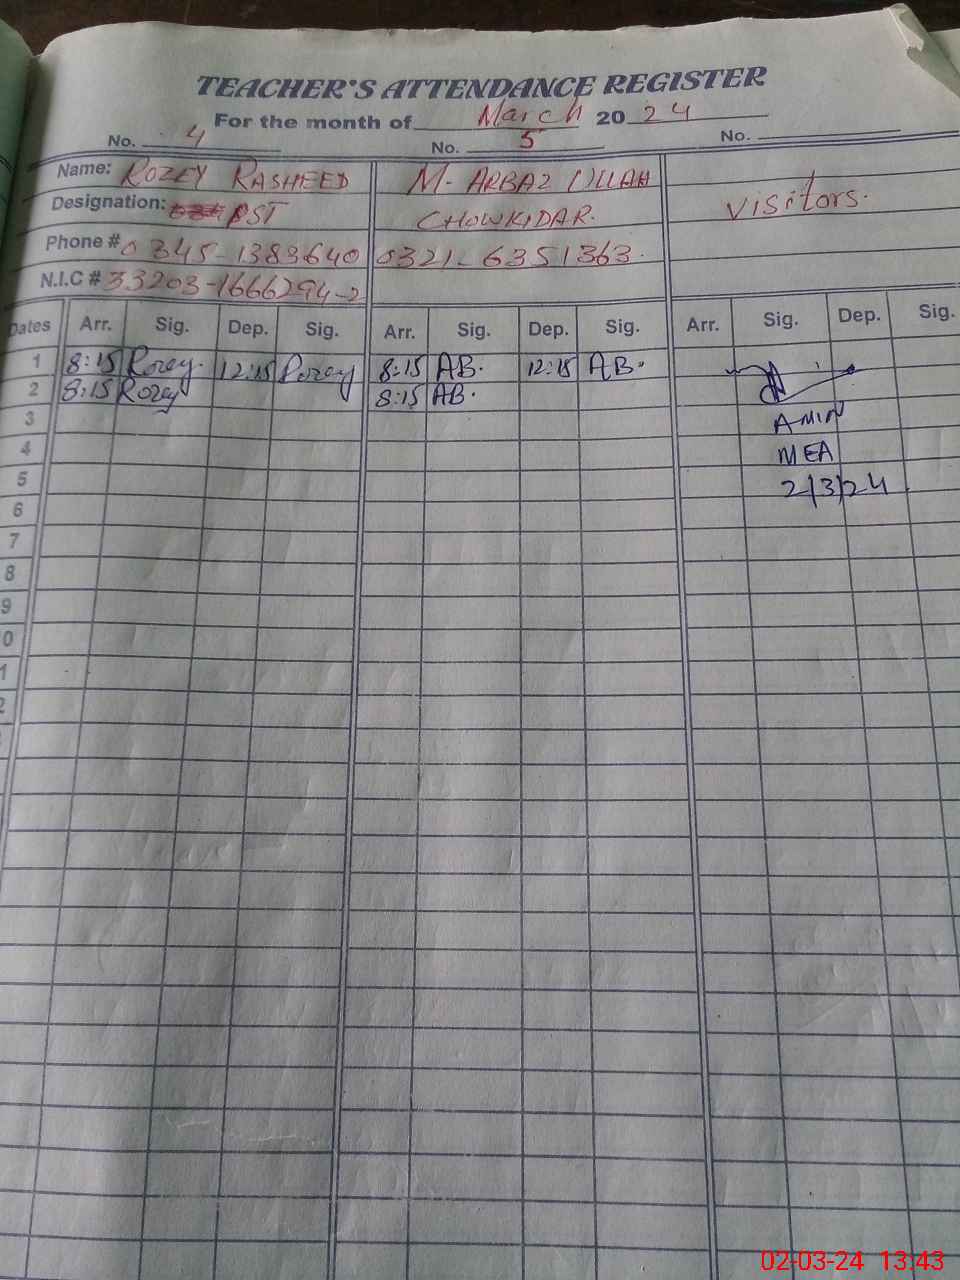 TEACHER'S ATTENDANCE REGISTER
For the month of March 2024
No. 4 No. 5 No.
Name: ROZEY RASHEED M. ARBAZ ULLAH
Designation: PST CHOWKIDAR. Visitors.
Phone # 0345-1383640 0321-6351363.
N.I.C # 33203-1666294-2
Dates Arr. Sig. Dep. Sig. Arr. Sig. Dep. Sig. Arr. Sig. Dep. Sig.
1 8:15 Rozey. 12:15 Rozey 8:15 AB. 12:15 AB.
2 8:15 Rozey 8:15 AB.
3 AMIN
4 MEA
5 2/3/24
6
7
8
9
0
1
2
02-03-24 13:43